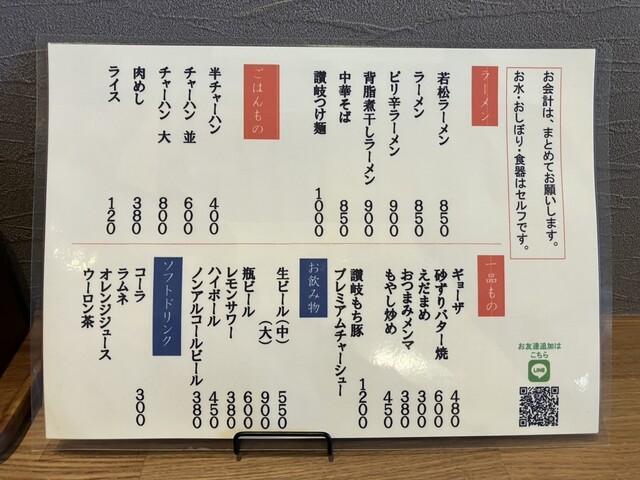 お会計は、まとめてお願いします。
お水・おしぼり・食器はセルフです。
ラーメン
若松ラーメン 850
ラーメン 850
ピリ辛ラーメン 900
背脂煮干しラーメン 900
中華そば 850
讃岐つけ麺 1000
ごはんもの
半チャーハン 400
チャーハン 並 600
チャーハン 大 800
肉めし 380
ライス 120
一品もの
ギョーザ 480
砂ずりバター焼 600
えだまめ 300
おつまみメンマ 380
もやし炒め 450
讃岐もち豚
プレミアムチャーシュー 1200
お飲み物
生ビール(中) 550
(大) 900
瓶ビール 600
レモンサワー 380
ハイボール 450
ノンアルコールビール 380
ソフトドリンク
コーラ 300
ラムネ
オレンジジュース
ウーロン茶
お友達追加は
こちら
LINE